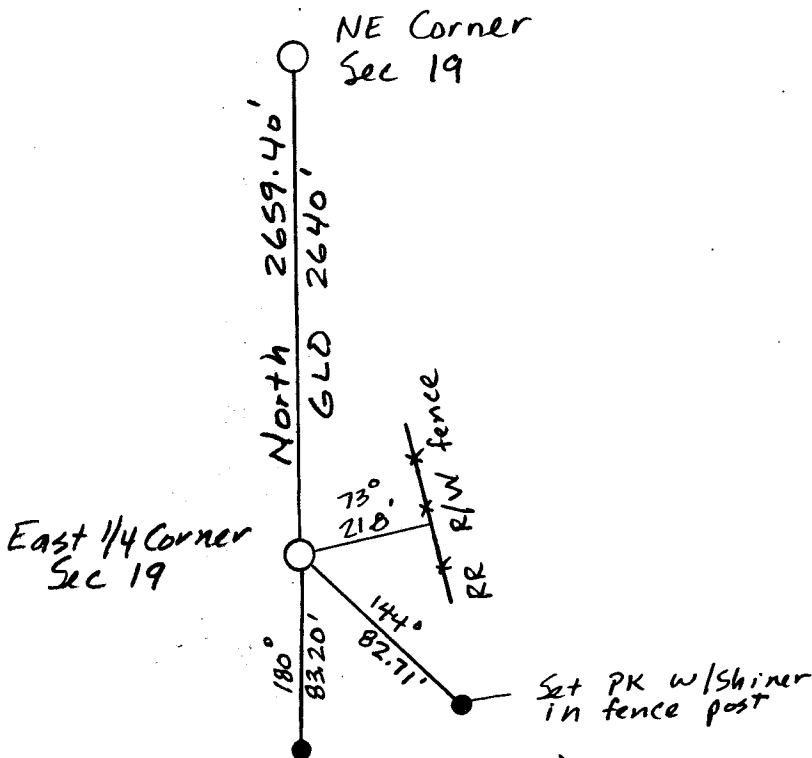 NE Corner
Sec 19
North 2659.40'
GLO 2640'
R/W fence
RR
73°
218'
East 1/4 Corner
Sec 19
144°
82.71'
180°
83.20'
Set PK w/Shiner
in fence post